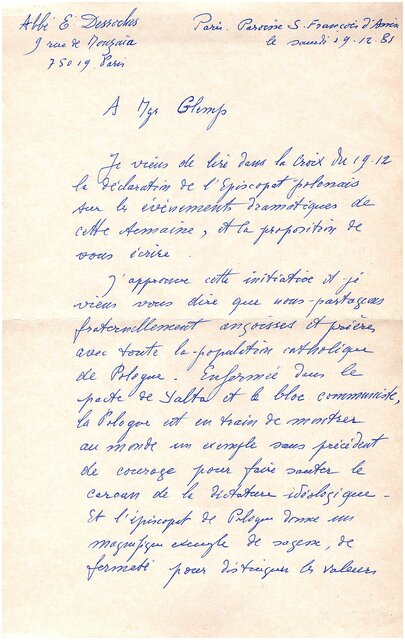 Abbé E. Desroches
9 rue de Mouzaïa
75019. Paris
Paris. Paroisse S. François d'Assise
le samedi 19.12.81
A Mgr Glemp
Je viens de lire dans la Croix du 19.12
la déclaration de l'Episcopat polonais
sur les événements dramatiques de
cette semaine, et la proposition de
vous écrire.
J'approuve cette initiative et je
viens vous dire que nous partageons
fraternellement angoisses et prières
avec toute la population catholique
de Pologne. Enfermée dans le
pacte de Yalta et le bloc communiste,
la Pologne est en train de montrer
au monde un exemple sans précédent
de courage pour faire sauter le
carcan de la dictature idéologique -
Et l'épiscopat de Pologne donne un
magnifique exemple de sagesse, de
fermeté pour distinguer les valeurs